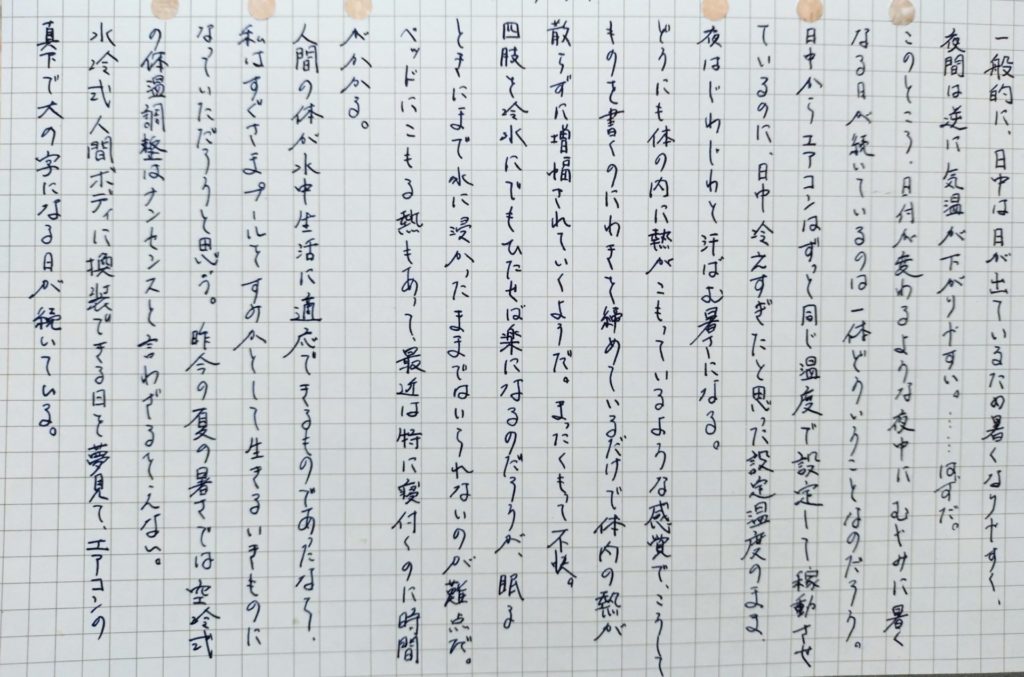 一般的に、日中は日が出ているため暑くなりやすく、
夜間は逆に気温が下がりやすい。……はずだ。
このところ、日付が変わるような夜中にむやみに暑く
なる日が続いているのは一体どういうことなのだろう。
日中からエアコンはずっと同じ温度で設定して稼動させ
ているのに、日中冷えすぎたと思った設定温度のまま
夜はじわじわと汗ばむ暑さになる。
どうにも体の内に熱がこもっているような感覚で、こうして
ものを書くのにわきを締めているだけで体内の熱が
散らずに増幅されていくようだ。まったくもって不快。
四肢を冷水にでもひたせば楽になるのだろうが、眠る
ときにまで水に浸かったままではいられないのが難点だ。
ベッドにこもる熱もあって、最近は特に寝付くのに時間
がかかる。
人間の体が水中生活に適応できるものであったなら、
私はすぐさまプールをすみかとして生きるいきものに
なっていただろうと思う。昨今の夏の暑さでは空冷式
の体温調整はナンセンスと言わざるをえない。
水冷式人間ボディに換装できる日を夢見て、エアコンの
真下で大の字になる日が続いている。